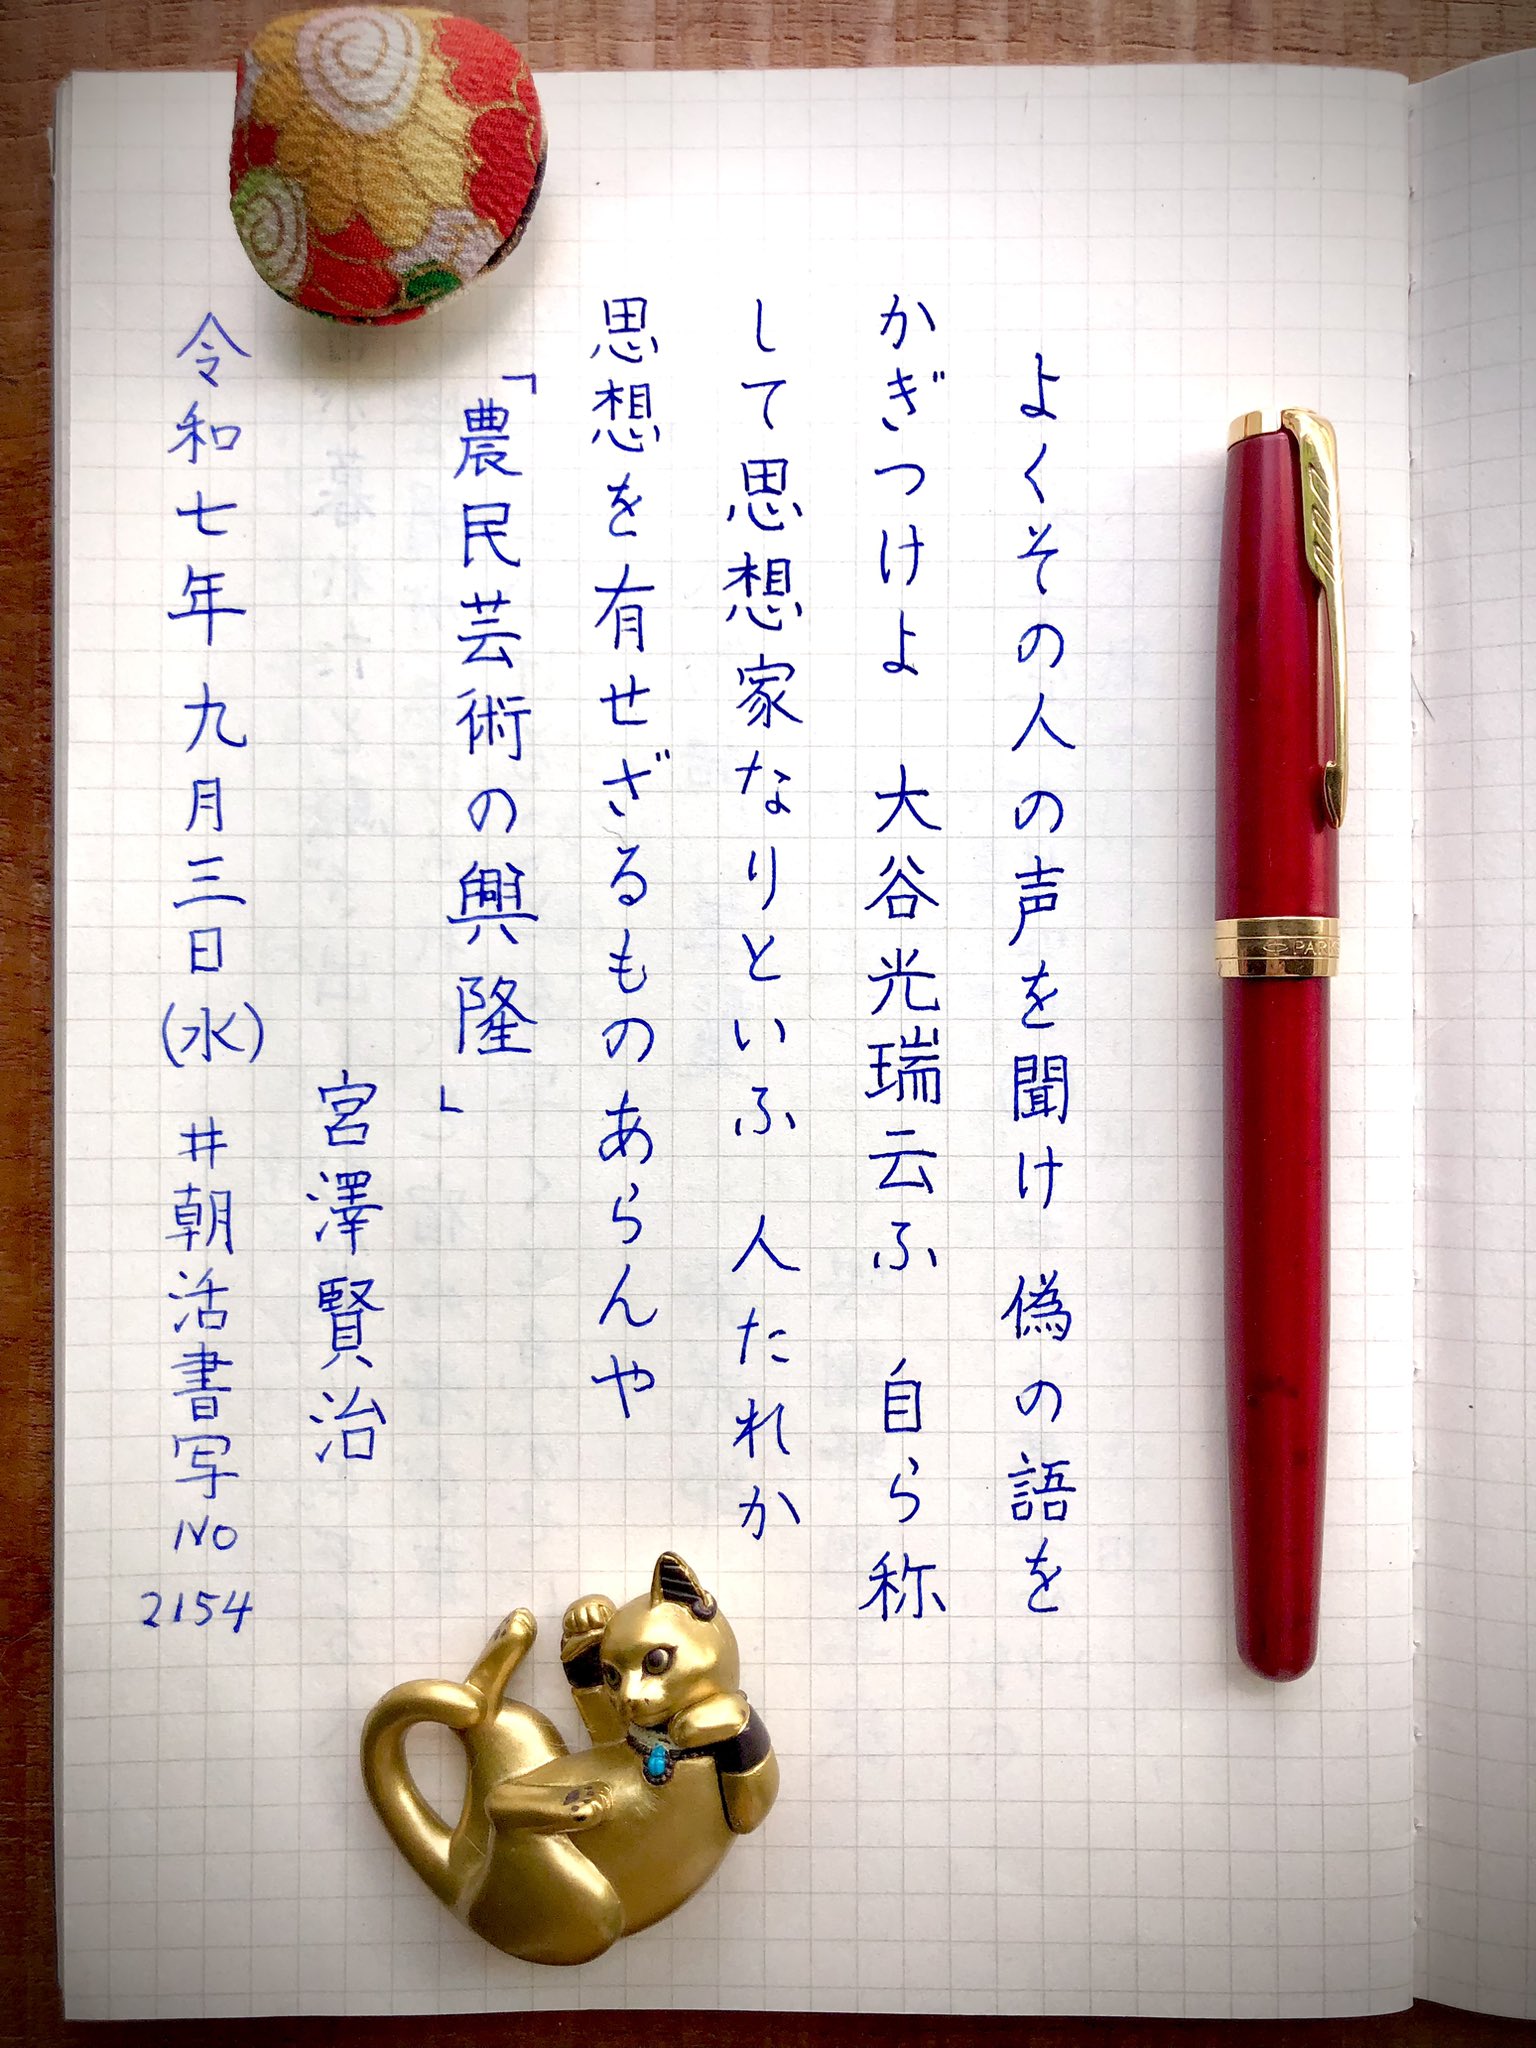 よくその人の声を聞け　偽の語を
かぎつけよ　大谷光瑞云ふ　自ら称
して思想家なりといふ　人たれか
思想を有せざるものあらんや
「農民芸術の興隆」
宮澤賢治
令和七年九月三日(水)　#朝活書写NO
2154